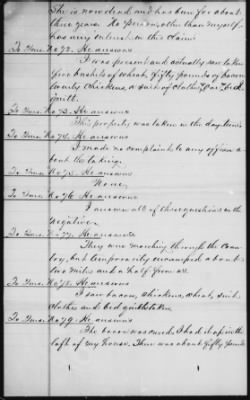 She is now dead and has been for about
three years. No person other than myself
has any interest in this claim.
To Ques. No 72. He answers
I was present and actually saw taken
five bushels of wheat, fifty pounds of bacon
twenty chickens, a suit of clothes, one bed
quilt.
To Ques. No 73. He answers
This property was taken in the day time
To Ques. No 74. He answers
I made no complaint to any officer a-
bout the taking.
To Ques. No 75. He answers
None,
To Ques. No 76. He answers
I answer all of these questions in the
negative.
To Ques. No 77. He answers
They were marching through the coun-
try, but temporarily encamped about
two miles and a half from us.
To Ques. No 78. He answers
I saw bacon, chickens, wheat, suit
clothes and bed quilt taken
To Ques. No 79. He answers
The bacon was cured, I had it up in the
loft of my house. There was about fifty pounds